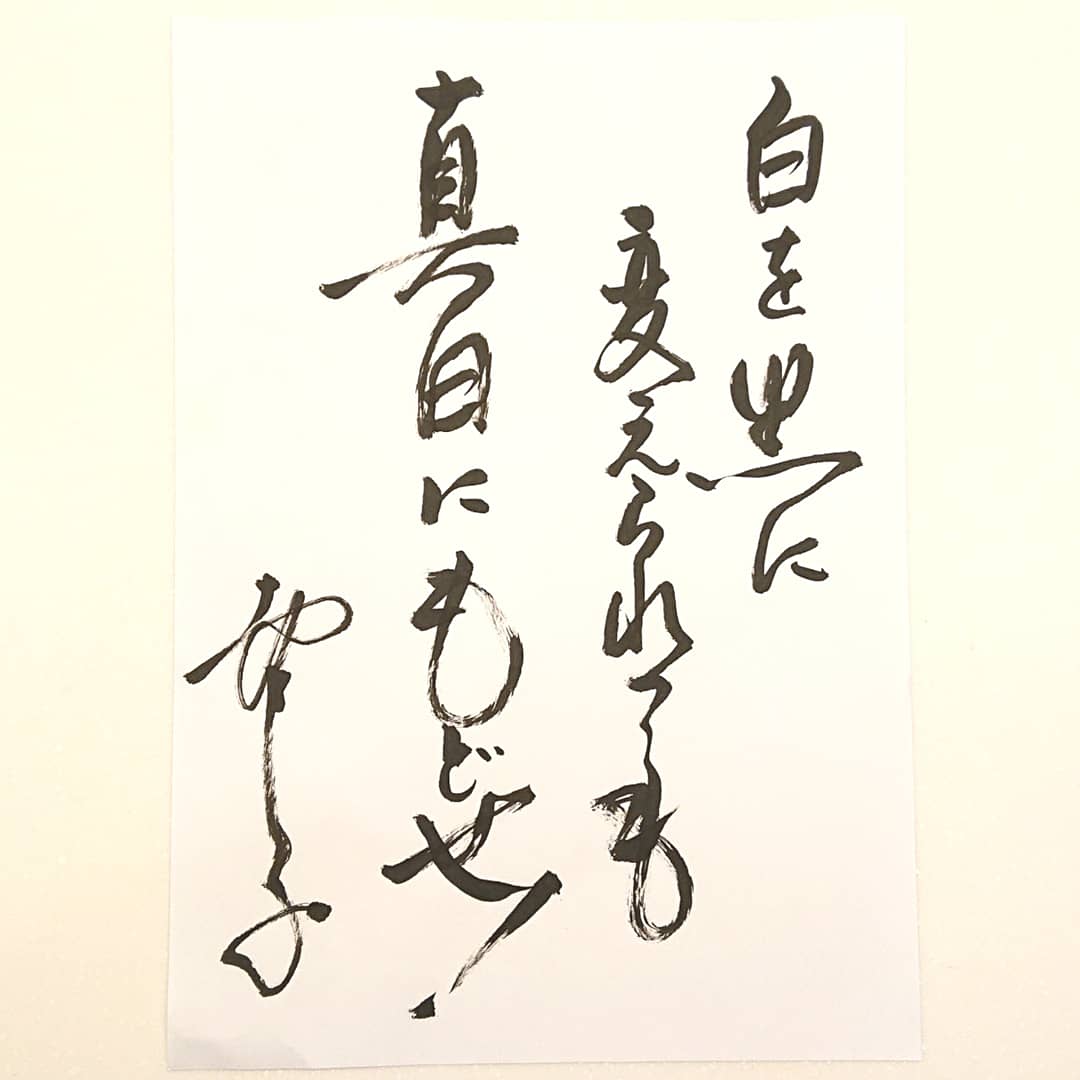 白を黒に
変えられても
真白にもどせ!